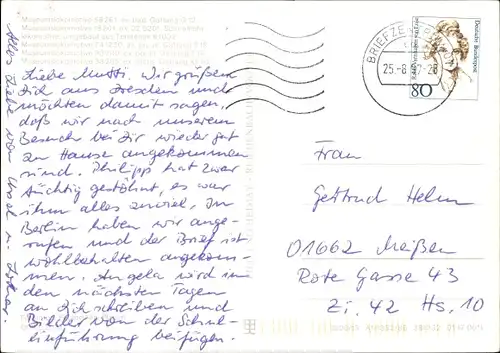 Liebe Mutti. Wir grüßen
Dich aus Dresden und
möchten damit sagen,
daß wir nach unserem
Besuch bei Dir wieder gut
zu Hause angekommen
sind. Philipp hat zwar
tüchtig gestöhnt, es war
ihm alles zuviel. In
Berlin haben wir ange-
rufen und der Brief ist
wohlbehalten angekom-
men. Angela wird in
den nächsten Tagen
an Dich schreiben und
Bilder von der Schul-
einführung beifügen.
Alles Liebe von Ursel u.
BRIEFZE
25.-8.
Deutsche Bundespost
80
Frau
Gertrud Helm
01662 Meißen
Rote Gasse 43
Zi. 42 Hs. 10